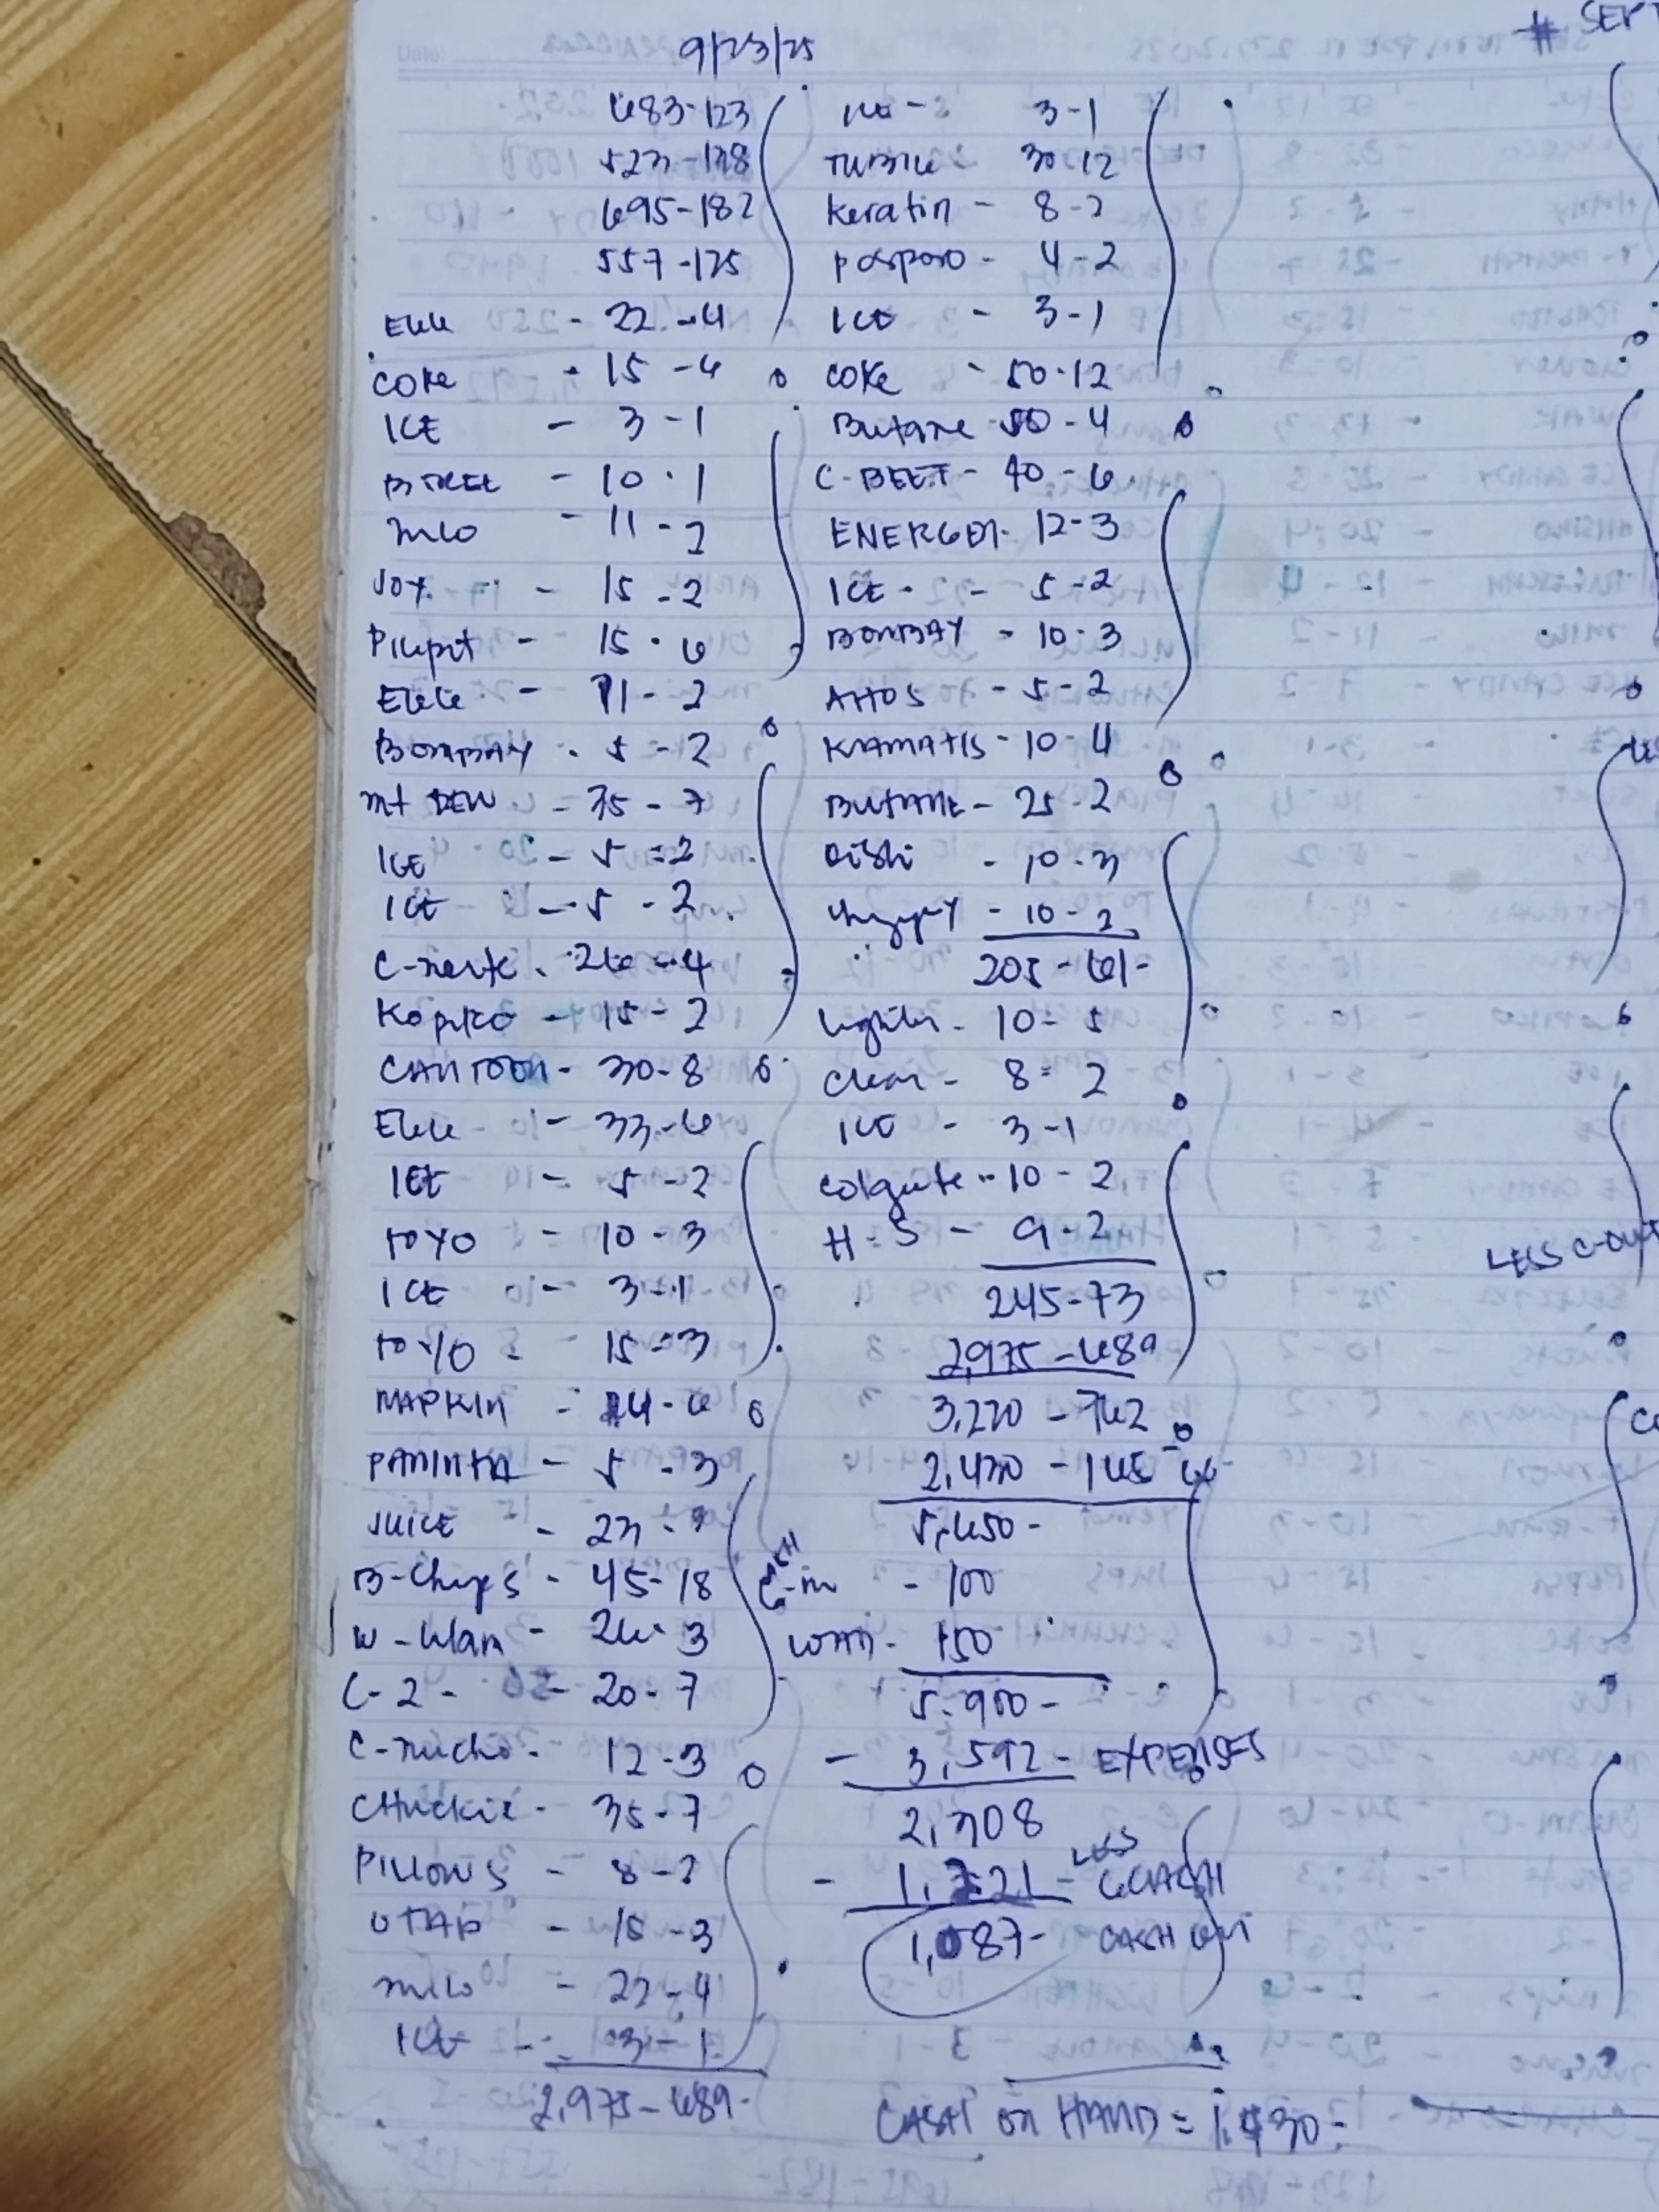 9/23/25
683-123
523-138
695-182
557-125
Elle - 22-4
COKE - 15-4
ICE - 3-1
- 10-1
MILO - 11-2
JOY - 15-2
- 15-6
Elele - 11-2
BOMBAY - 5-2
mt DEW - 35-7
ICE - 5-2
ICE - 5-2
- 26-4
Kopiko - 15-2
CANTOON - 30-8
Elle - 33-6
ICE - 5-2
TOYO - 10-3
ICE - 3-1
TOYO - 15-3
NAPKIN - 24-6
PAMINTA - 5-3
JUICE - 23-
B-Chips - 45-18
- 26-3
C-2 - 20-7
C-nucho - 12-3
CHuckie - 35-7
PILLOWS - 8-2
OTAP - 15-3
MILO - 22-4
ICE - 3-1
2,975-689-
ICE - 3-1
30-12
Keratin - 8-2
posporo - 4-2
ICE - 3-1
COKE - 50-12
Butane - 50-4
C-BEEF - 40-6
ENERGEN - 12-3
ICE - 5-2
BOMBAY - 10-3
AHOS - 5-2
KAMATIS - 10-4
BUTANE - 25-2
Oishi - 10-3
- 10-2
205-61-
Lighter - 10-5
Clear - 8-2
ICE - 3-1
Colgate - 10-2
H.S - 9-2
245-73
2,975-689
3,220-762
2,430-165
5,650-
CASH-in - 100
LOAD - 150
5,900-
- 3,592- EXPENSES
2,308
- 1,221- LESS GCASH
1,087- CASH OUT
CASH on HAND = 1,430-
# SEPT
LESS C-OUT